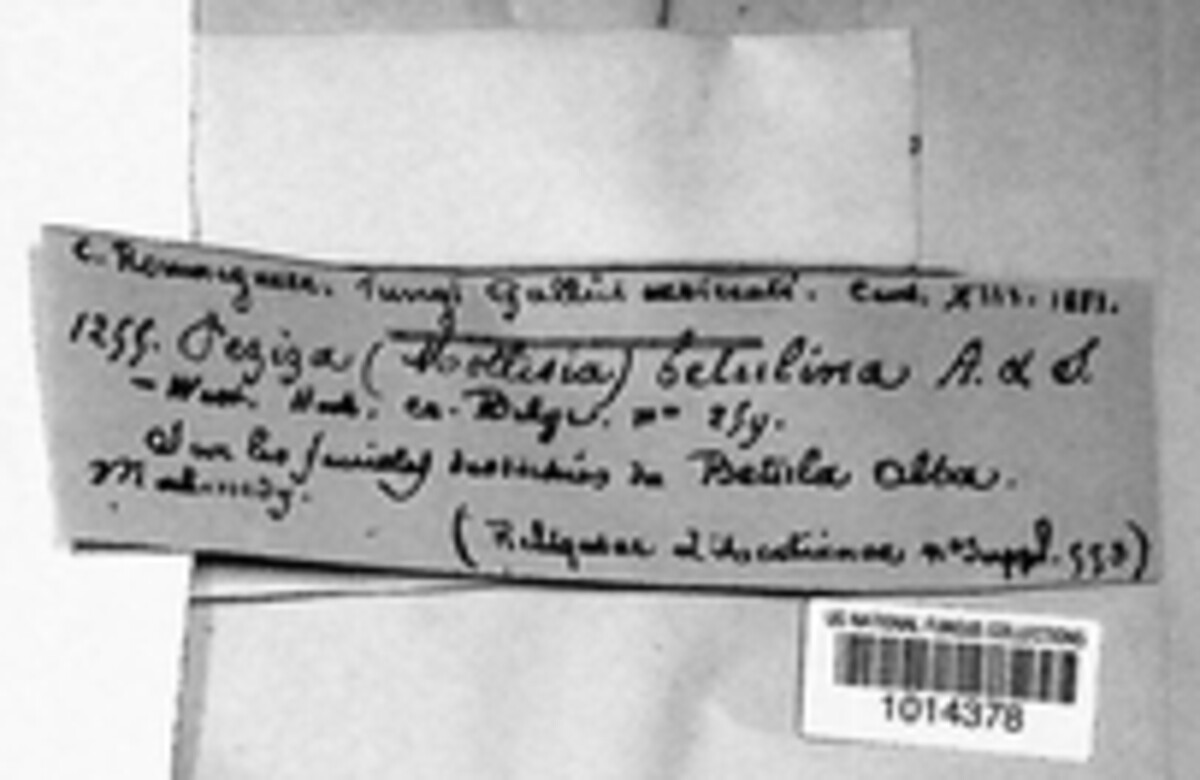 C. Roumeguere. Fungi Gallici exsiccati. Cent. XIII. 1881.
1255. Peziza (Mollisia) betulina A. & S.
- West. Herb. cr. Belge. no
Sur les feuilles de Betula alba.
Malmedy.
(Reliquiae Libertianae no Suppl.
US NATIONAL FUNGUS COLLECTIONS
1014378